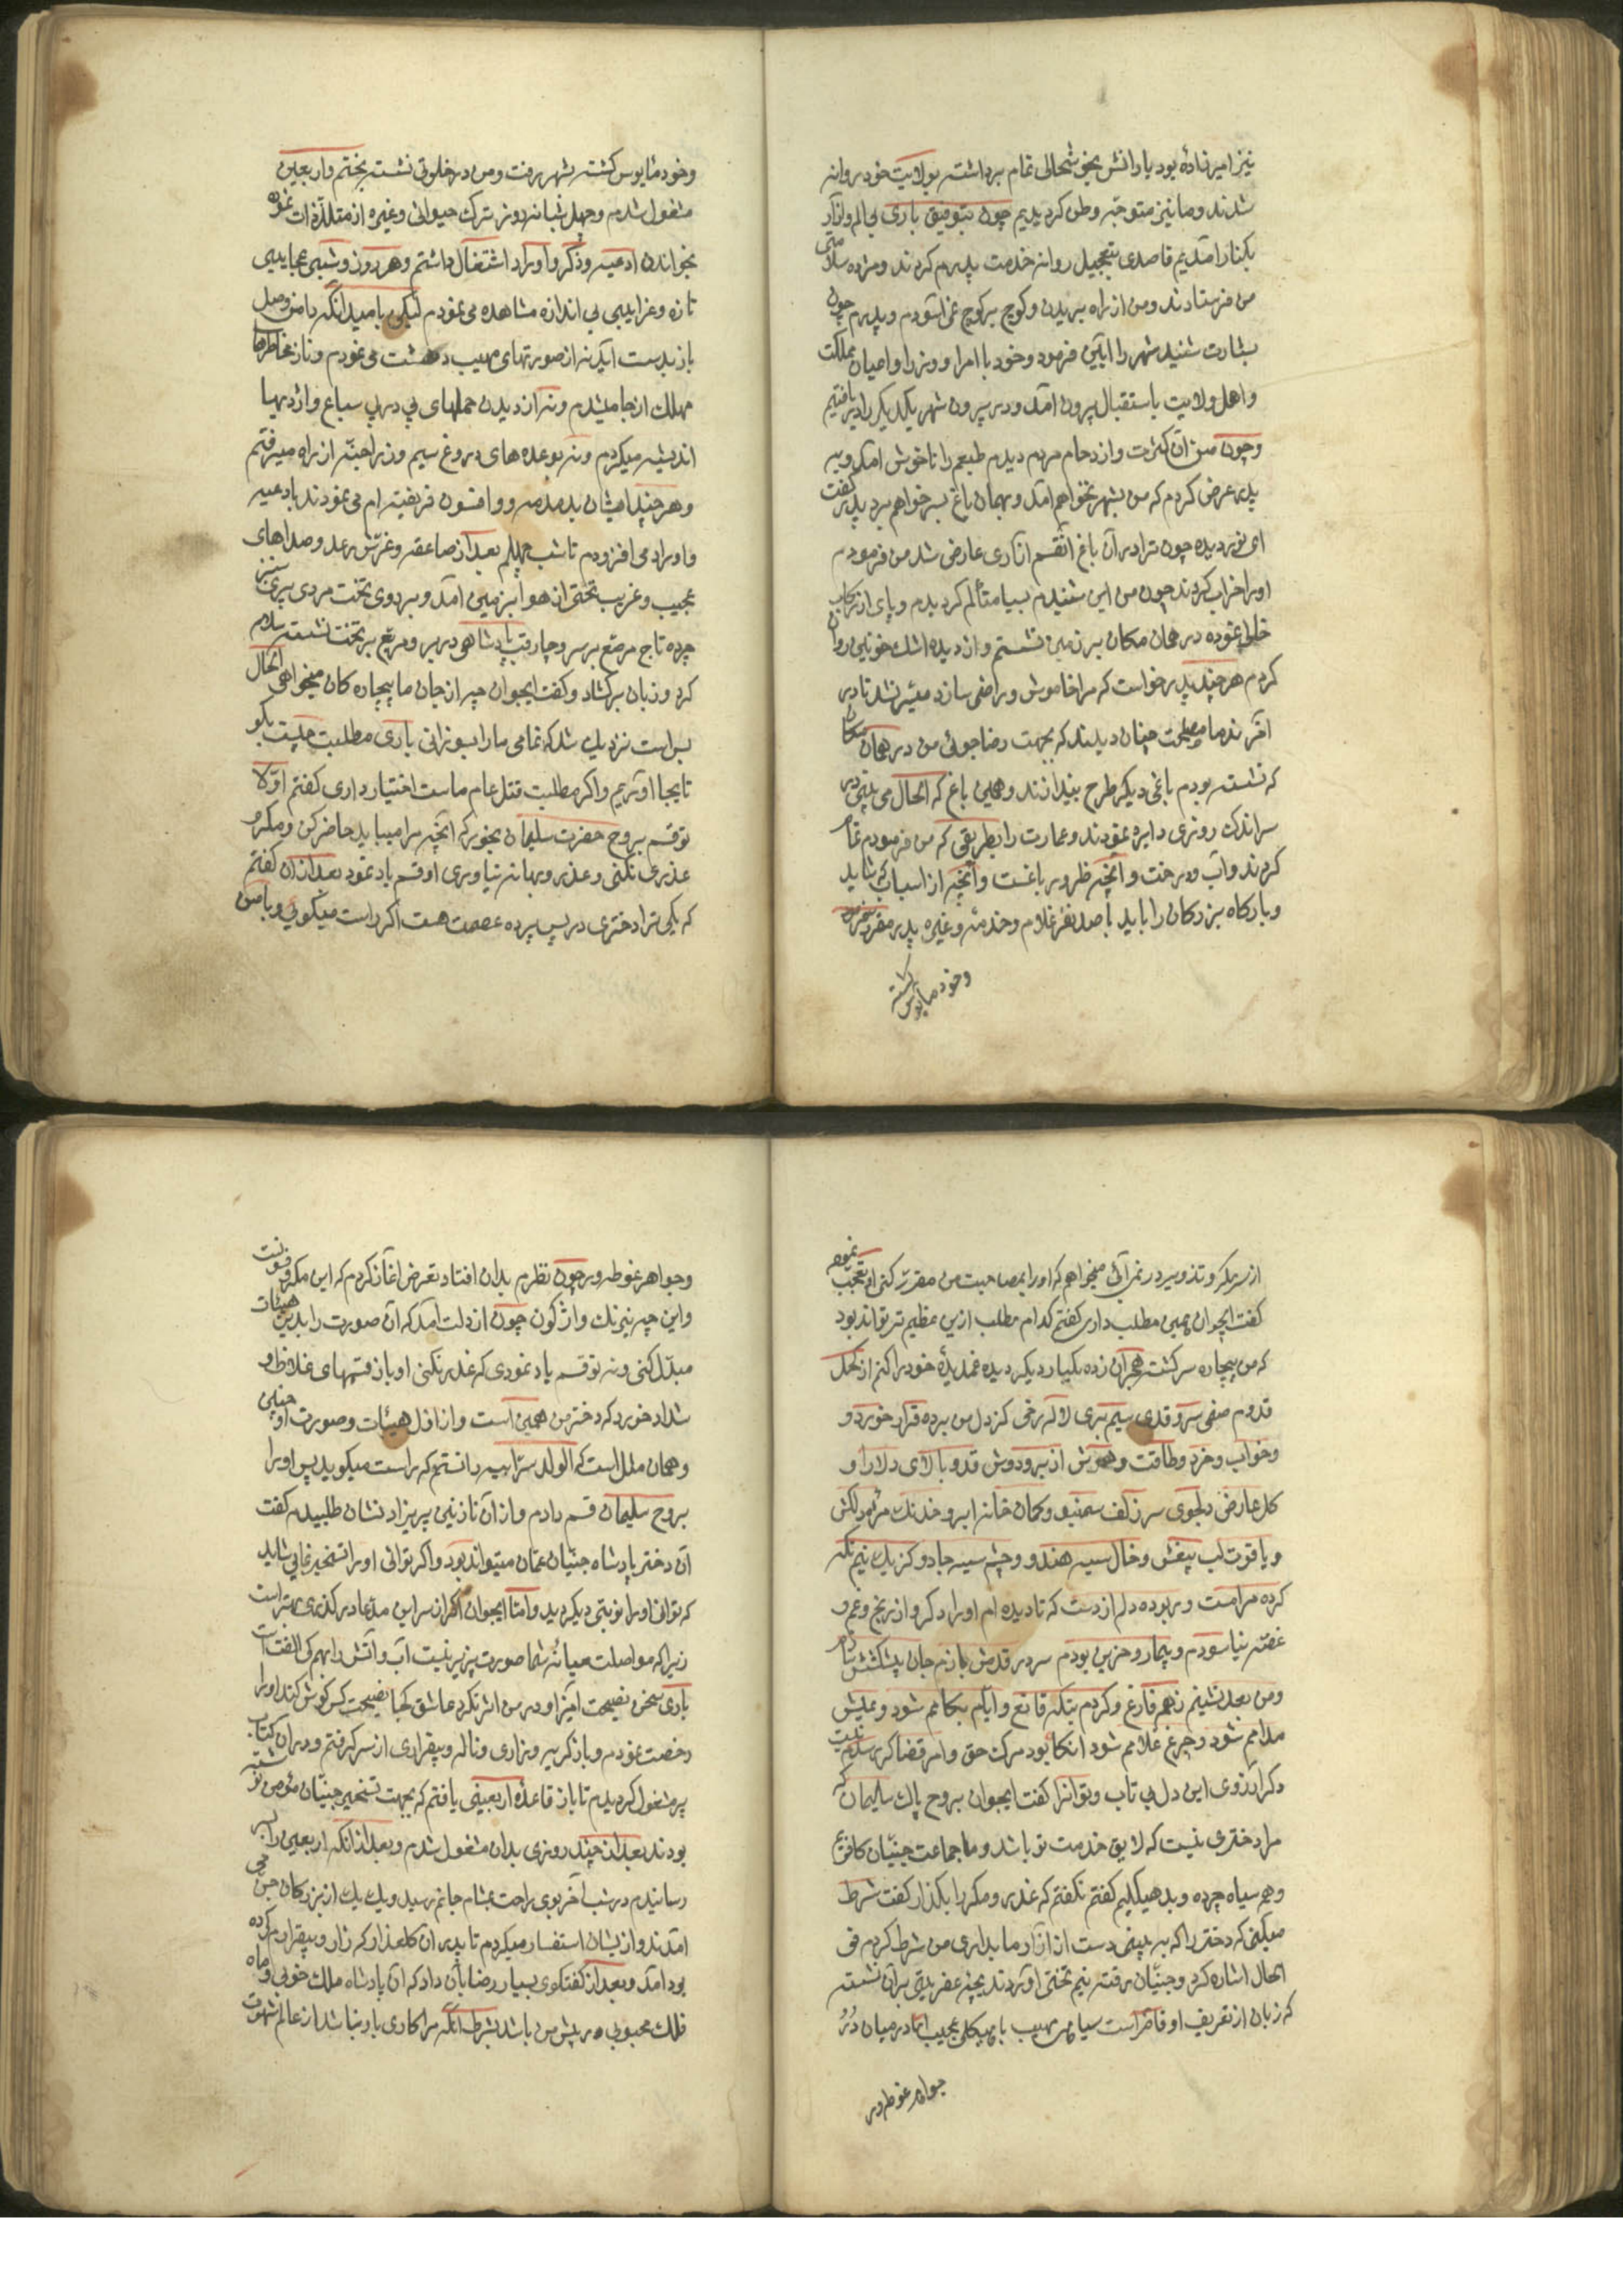 نیز امیرزاده بود یارانش بخوشحالی تمام برداشته بولایت خود روانه
شدند و ما نیز متوجه وطن کردیدیم چون بتوفیق باری بی الم و آزار
بکنار آمدیم قاصدی بتعجیل روانه خدمت پدرم کردند و مژده سلامتی
من فرستادند و من از راه بریدن و کوچ بر کوچ نمی آسودم و پدرم چون
بشارت شنید شهر را آیین فرمود و خود با امرا و وزرا و اعیان مملکت
و اهل ولایت باستقبال بیرون آمد و در بیرون شهر یکدیکر را دریافتیم
و چون من آن کثرت و ازدحام مردم دیدم طبعم را ناخوش آمد و به
پدر عرض کردم که من بشهر نخواهم آمد و بهمان باغ بسر خواهم برد پدر گفت
ای نور دیده چون ترا در آن باغ آنقسم آزاری عارض شد من فرمودم
او را خراب کردند چون من این شنیدم بسیا متألم کردیدم و پای از رکاب
خالی نموده در همان مکان بر زمین نشستم و از دیده اشک خونین روان
کردم هر چند پدر خواست که مرا خاموش و راضی سازد میسر نشد تا در
آخر ندما مصلحت چنان دیدند که بجهت رضا جوئی من در همان مکان
که نشسته بودم باغی دیکر طرح بیندازند و همین باغ که الحال می بینی در
سر اندک روزی دایره نمودند و عمارت را بطریقی که من فرمودم تمام
کردند و آب و درخت و آنچه ظرور باغست و آنچه از اسباب که شاید
و بارکاه بزرکان را باید با صد نفر غلام و خدمه و غیره پدر مقرر نمود
و خود مایوس کشته
و خود مایوس کشته بشهر رفت و من در خلوتی نشسته بختم و اربعین
مشغول شدم و چهل شبانه روز ترک حیوانی و غیره از متلذذات نموده
بخواندن ادعیه و ذکر و اوراد اشتغال داشتم و هر روز و شبی عجایبی
تازه و غرایبی بی اندازه مشاهده می نمودم لیکن بامید آنکه دامن وصل
باز بدست آید نه از صورتهای مهیب دهشت می نمودم و نه از مخاطرها
مهلک از جا میشدم و نه از دیدن حملهای پی در پی سباع و اژدهها
اندیشه میکردم و نه بوعده های دروغ سیم و زر اجنه از راه میرفتم
و هر چند ایشان بدمدمه و افسون فریفته ام می نمودند بادعیه
و اوراد می افزودم تا شب چهلم بعد از صاعقه و غرش رعد و صداهای
عجیب و غریب تختی از هوا بزمین آمد و بر روی تخت مردی پیری سبز
چرده تاج مرصع بر سر و چارقب پادشاهی در بر و مربع بر تخت نشسته سلام
کرد و زبان برکشاد و کفت ایجوان چه از جان ما بیچاره کان میخواهی الحال
بس است نزدیک شد که تمامی ما را بسوزانی باری مطلبت چیست بکو
تا بجا آوریم و اکر مطلبت قتل عام ماست اختیار داری کفتم اولا
تو قسم بروح حضرت سلیمان بخور که آنچه مرا میباید حاضر کن و مکر و
عذری نکنی و عذر و بهانه نیاوری او قسم یاد نمود بعد از آن کفتم
که بلی ترا دختری در پس پرده عصمت هست اکر راست میکوئی و با من
از سر مکر و تذویر در نمی آئی میخواهم که او را بمصاحبت من مقرر کنی او تعجب نموده
کفت ایجوان همین مطلب داری کفتم کدام مطلب ازین عظیم تر تواند بود
که من بیچاره سرکشته هجران زده یکبار دیکر دیده غمدیدهٔ خود را کنم از کحل
قدوم صفی سرو قدی سیم بری لاله رخی کز دل من برده قرار خورد و
و خواب و خرد و طاقت و هوش از بر و دوش قد و بالای دلارا و
کل عارض دلجوی سر زلف سمنبو و کمان خانه ابرو خدنک مژه دلکش
و یاقوت لب بیغش و خال سیه هندو و چشم سیه جادو کز یک نیم نکه
کرده مرا مست و ربوده دلم از دست که تا دیده ام او را دکر و از رنج و غم و
غصه نیاسودم و بیمار و حزین بودم سر در قدمش بازم جان پیشکشش سازم
و من بعد نشینم ز هم فارغ و کردم بنکه قانع و ایام بکامم شود و عیش
مدامم شود و چرخ غلامم شود آنکا بود مرک حق و امر قضا کر برسد نیست
دکر آرزوی این دل بی تاب و توانرا کفت ایجوان بروح پاک سلیمان که
مرا دختری نیست که لایق خدمت تو باشد و ما جماعت جنیان کافریم
و هم سیاه چرده و بد هیکلیم کفتم نکفتم که غدر و مکر را بکذار کفت شرط
میکنی که دختر را که به بینی دست از آزار ما بداری من شرط کردم فی
الحال اشاره کرد و جنیان رفته نیم تختی آوردند بچه عفریتی بر آن نشسته
که زبان از تعریف او قاصر است سیاهی مهیب با هیکلی عجیب اما در میان درّ
جواهر غوطه ور
و جواهر غوطه ور چون نظرم بدان افتاد تعرض آغاز کردم که این مکر و فسونست
و این چه نیرنک واژکون چون از دلت آمد که آن صورت را بدین هیئات
مبدل کنی و نه تو قسم یاد نمودی که غدر نکنی او باز قسمهای غلاظ و
شداد خورد که دختر من همین است و از اول هیئات و صورت او چنین
و همان ملل است که الولد سر ابیه دانستم که راست میکوید پس او را
بروح سلیمان قسم دادم و از آن نازنین پریزاد نشان طلبیدم کفت
آن دختر پادشاه جنیان عمان میتواند بود و اکر توانی او را تسخیر نمایی شاید
که توانی او را نوبتی دیکر دید و اما ایجوان اکر از سر این مدعا در کذری بهتر است
زیرا که مواصلت میانه شما صورت پذیر نیست آب و آتش را بهم کی الفت است
باری سخن نصیحت آمیز او در من اثر نکرد عاشق کجا نصیحت کس کوش کند او را
رخصت نمودم و باز کریه و زاری و ناله و بیقراری از سر کرفتم و در آن کتاب
پر مشغول کردیدم تا باز قاعدهٔ اربعینی یافتم که بجهت تسخیر جنیان مؤمن نوشته
بودند بعد از چند روزی بدان مشغول شدم و بعد از آنکه اربعین را بسر
رسانیدم در شب آخر بوی راحت بمشام جانم رسید و یک یک از بزرکان جن می
آمدند و از یشان استفسار میکردم تا پدر آن کلعذار که زار و بیقرارم کرده
بود آمد و بعد از کفتکوی بسیار رضا بآن داد که آن پادشاه ملک خوبی و ماه
فلک محبوبی در پیش من باشد بشرط آنکه مرا کاری باو نباشد از عالم شهوت